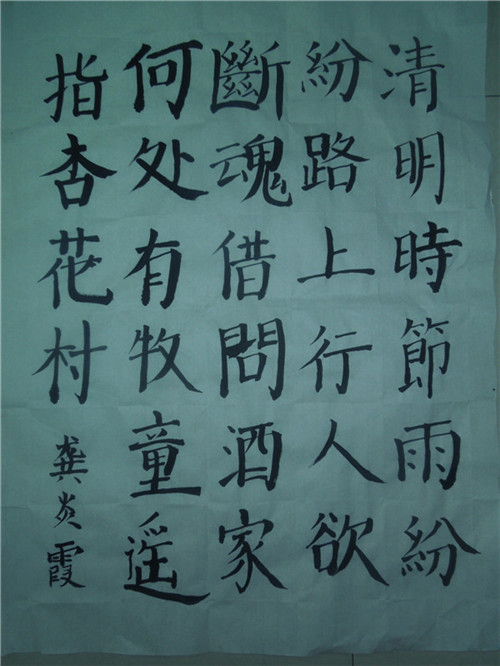 清明時節雨紛
紛路上行人欲
斷魂借問酒家
何处有牧童遥
指杏花村
龚炎霞